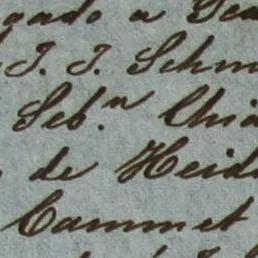 gado a Sea
J. J. Schm
Seb.n Chia
de Heid
Cammet